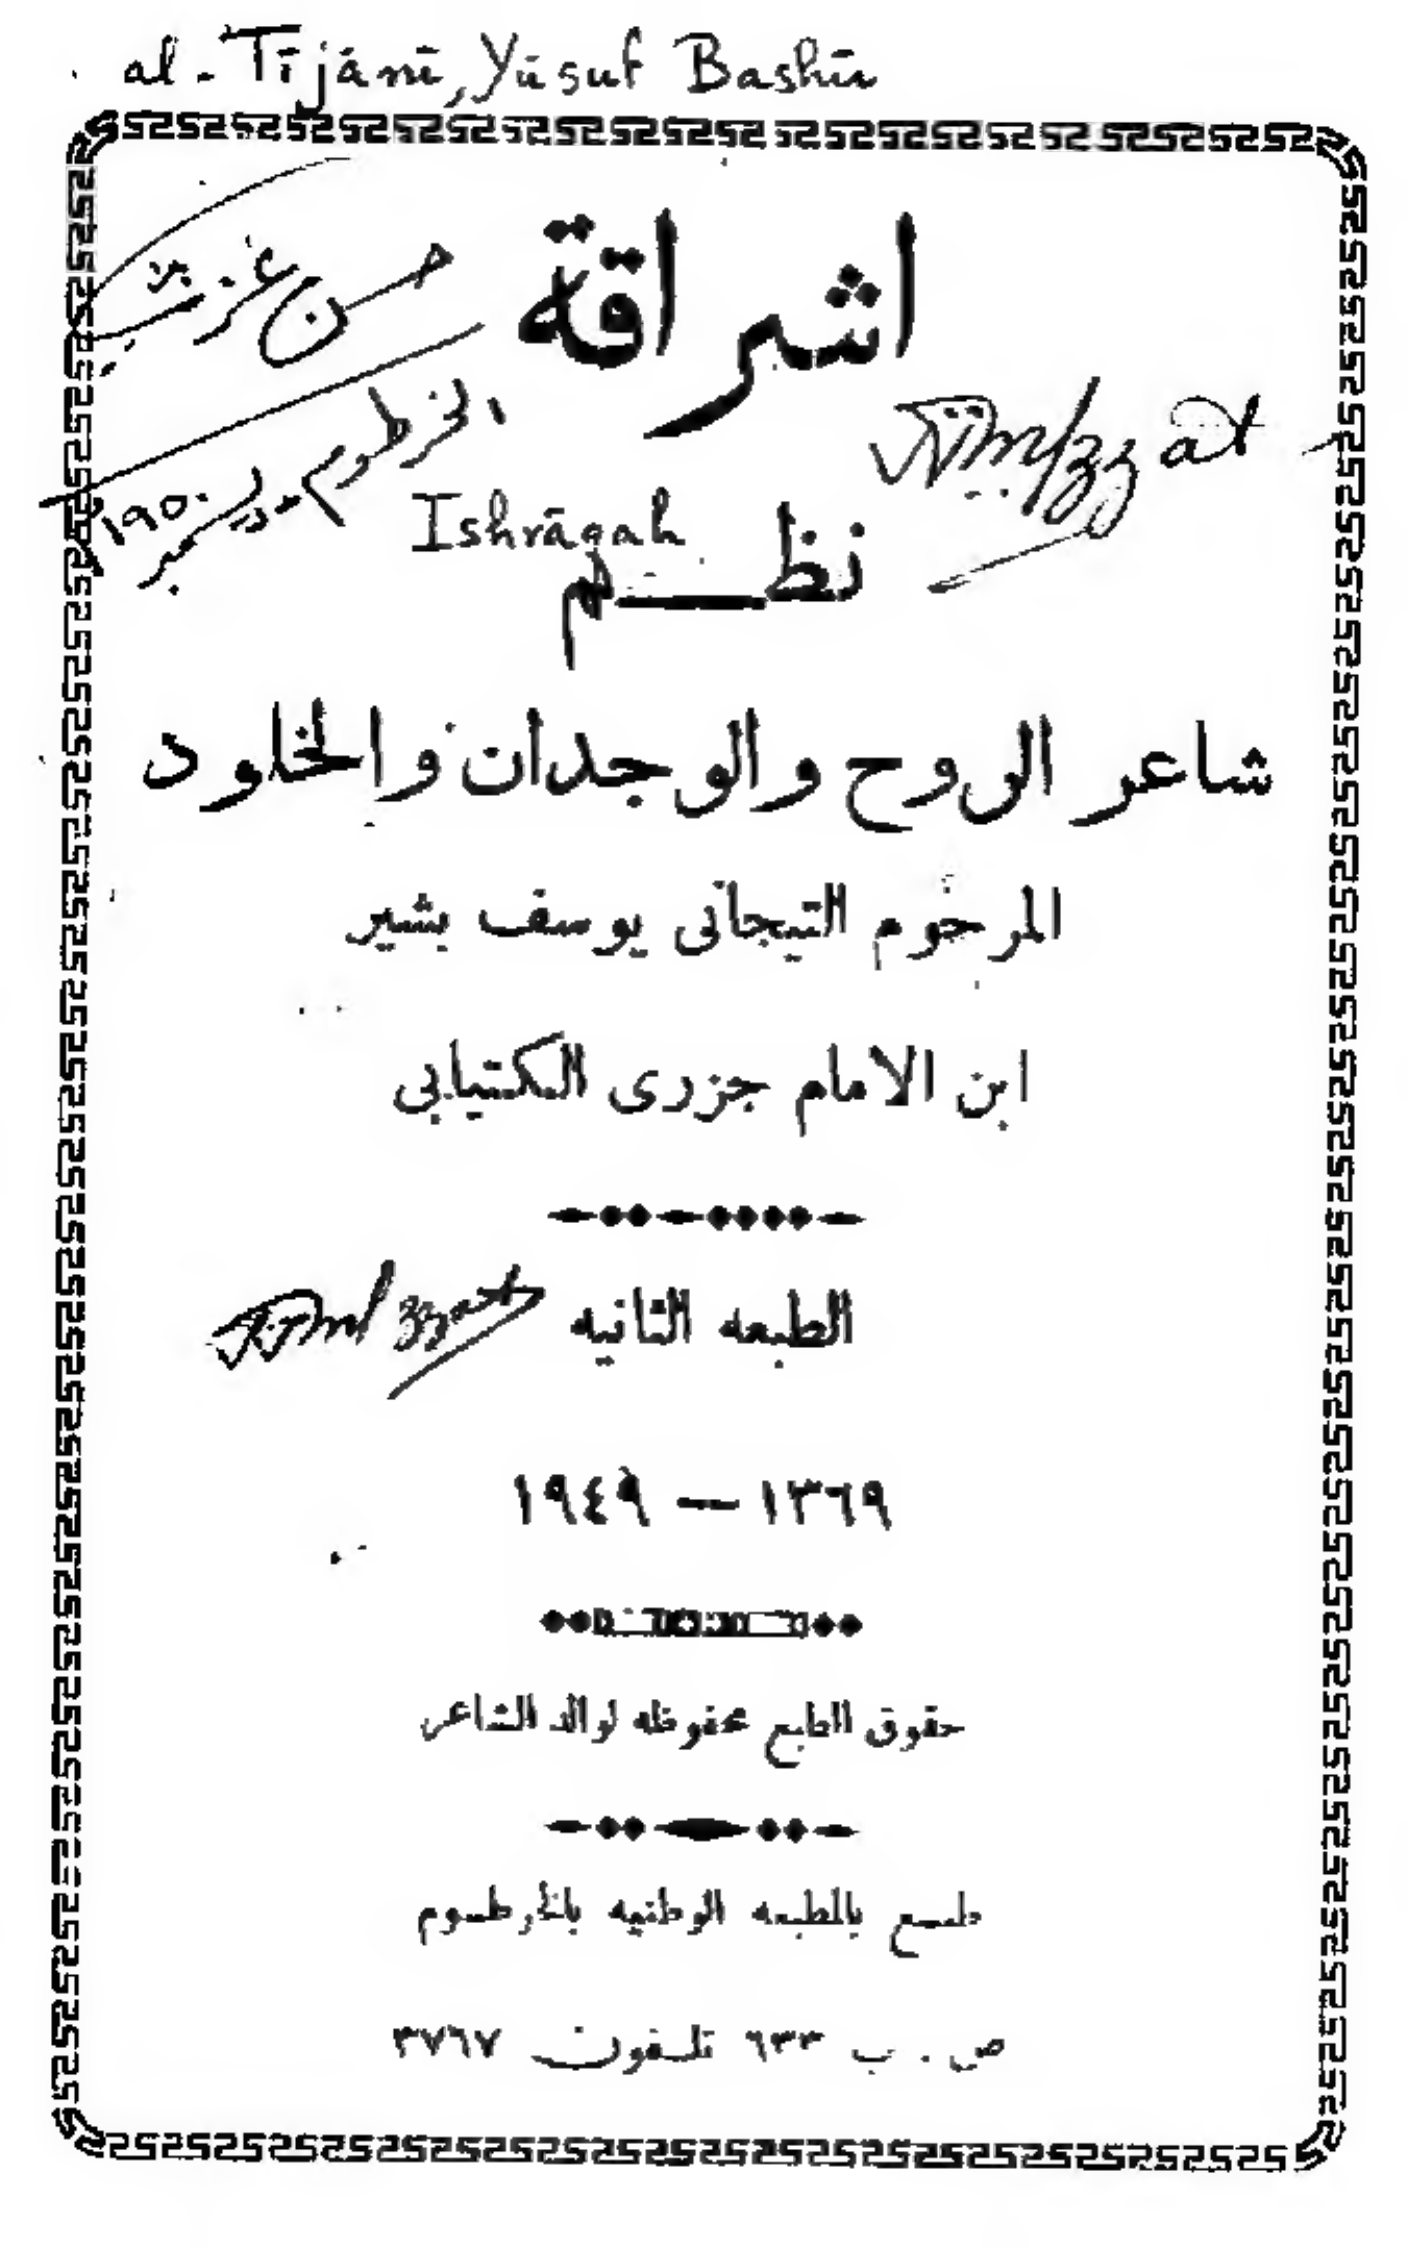 al-Tījānī, Yūsuf Bashīr
اشراقة
حسن عزت
الخرطوم - ديسمبر ١٩٥٠
Ishrāqah
نظـــم
شاعر الروح والوجدان والخلود
المرحوم التيجانى يوسف بشير
ابن الامام جزرى الكتيابى
الطبعه الثانيه
١٣٦٩ — ١٩٤٩
حقوق الطبع محفوظه لوالد الشاعر
طبـع بالمطبعه الوطنيه بالخرطـوم
ص . ب ٦٣٣ تلـفون ٣٧٦٧